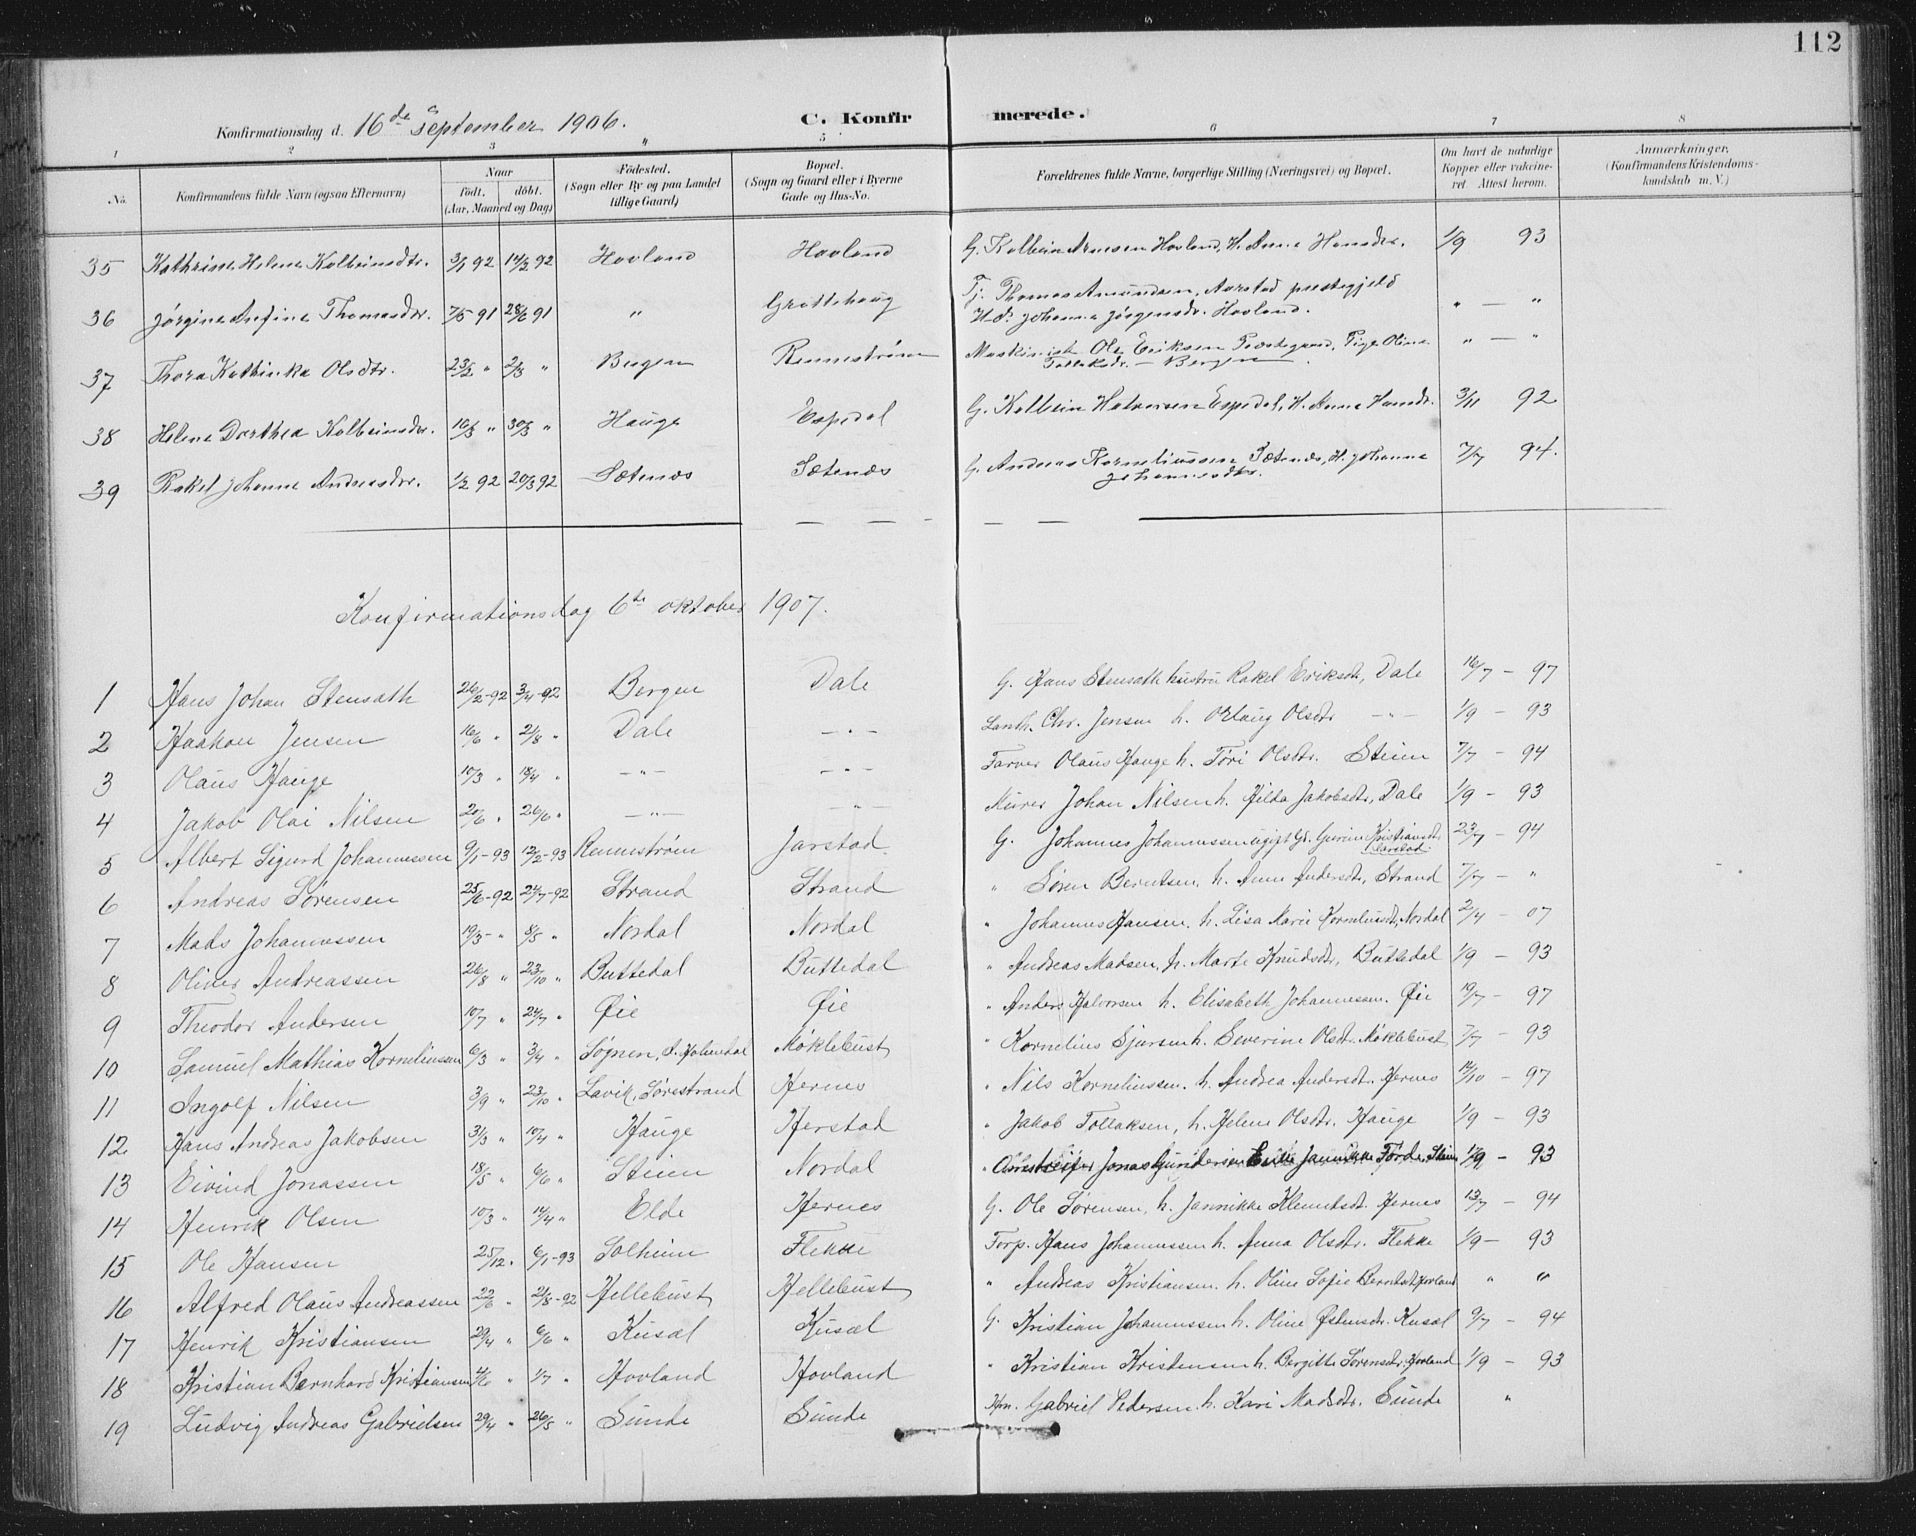 112
Konfirmationsdag d. 16de September 1906. C. Konfirmerede.
1 2 3 " 5 6 7 8
No. Konfirmandens fulde Navn (ogsaa Efternavn) Naar født. døbt. (Aar, Maaned og Dag) Fødested. (Sogn eller By og paa Landet tillige Gaard) Bopæl. (Sogn og Gaard eller i Byerne Gade og Hus-No. Forældrenes fulde Navne, borgerlige Stilling (Næringsvei) og Bopæl. Om havt de naturlige Kopper eller vaccineret. Attest herom. Anmærkninger, (Konfirmandens Kristendomskundskab m. V.)
35 Kathrine Helene Kolbeinsdtr. 3/1 92 14/2 92 Hovland Hovland G. Kolbein Arnesen Hovland, H. Anne Hansdr. 1/9 93
36 Jørgine Anfine Thomasdr. 7/5 91 28/6 91 " Grøttehaug Tj. Thomas Amundsen, Aarstad prestegjeld
H.d. Johanne Jørgensdr. Hovland. " — "
37 Thora Kathinka Olsdtr. 23/2 " 2/3 " Bergen Rennestrøm Maskinist Ole Eriksen Pige Oline
Tollaksdr. — Bergen. " — "
38 Helene Dorthea Kolbeinsdr. 16/3 " 30/3 " Hauge Espedal G. Kolbein Halvorsen Espedal, H. Anne Hansdr. 3/11 92
39 Rakel Johanne Andreasdr. 1/2 92 20/3 92 Sætenæs Sætenæs G. Andreas Korneliussen Sætenæs, H. Johanne
Johannesdtr. 7/7 94.
Konfirmationsdag 6te oktober 1907.
1 Hans Johan Stensath 26/2-92 3/4-92 Bergen Dale G. Hans Stensath hustru Rakel Eriksdt, Dale 16/7 - 97
2 Haakon Jensen 16/6 " 21/8 " Dale — " — Lanh. Chr. Jensen h. Oklaug Olsdtr — " — 1/9 - 93
3 Olaus Hauge 10/3 " 18/4 " — " — — " — Farver Olaus Hauge h. Tøri Olsdtr. Steien 7/7 - 94
4 Jakob Olai Nilsen 20/6 " 26/6 " — " — — " — Murer Johan Nilsen h. Hilda Jakobsdtr, Dale 1/9 - 93
5 Albert Sigurd Johannessen 9/1-93 12/2-93 Rennestrøm Jarstad G. Johannes Johannessen ugift Gd. Gurine Kristiansdt
Jarstad. 23/7 - 94
6 Andreas Sørensen 25/6-92 24/7-92 Strand Strand " Søren Berntsen, h. Anne Andersdt, Strand 7/7 - "
7 Mads Johannessen 19/3- " 8/5 " Nordal Nordal " Johannes Hansen, h. Lisa Marie Korneliusdt, Nordal 2/4 - 07
8 Oliver Andreassen 26/8 " 23/10 " Buttedal Buttedal " Andreas Madsen, h. Marte Knudsdtr, Buttedal 1/9 - 93
9 Theodor Andersen 10/7 " 24/7 " Øie Øie " Anders Halvorsen h. Elisabeth Johannesen. Øie 19/7 - 97
10 Samuel Mathias Korneliussen 6/3 " 3/4 " Møklebust " Kornelius Sjursen h. Severine Olsdt. Møklebust 7/7 - 93
11 Ingolf Nilsen 3/9 " 23/10 " Lavik, Sørestrand Hernes " Nils Korneliussen. h. Andrea Andersdt. Hernes 14/10 - 97
12 Hans Andreas Jakobsen 3/3 " 10/4 " Hauge Herstad " Jakob Tollaksen, h. Helene Olsdtr. Hauge 1/9 - 93
13 Eivind Jonassen 18/5 " 6/6 " Steien Nordal " Jonas Gundersen Jannikke Førde, Steien 1/9 - 93
14 Henrik Olsen 10/3 " 14/4 " Elde Hernes G. Ole Sørensen, h. Jannikke Klemetsdt. Hernes 13/7 - 94
15 Ole Hansen 25/12 " 6/1-93 Solheim Flekke Forp. Hans Johannessen h. Anna Olsdtr. Flekke 1/9 - 93
16 Alfred Olaus Andreassen 22/6 " 21/8-92 Hellebust Hellebust " Andreas Kristiansen h. Oline Sofie Berntsdt Hovland " "
17 Henrik Kristiansen 29/4 " 6/6 " Kusæl Kusæl G. Kristian Johannessen h. Oline Østensdtr. Kusæl 9/7 - 94
18 Kristian Bernhard Kristiansen 4/6 " 1/7 " Hovland Hovland " Kristian Kristensen h. Bergitte Sørensdtr, Hovland 1/9 - 93
19 Ludvig Andreas Gabrielsen 29/4 " 26/5 " Sunde Sunde Hm. Gabriel Pedersen. h. Kari Madsdtr. Sunde "